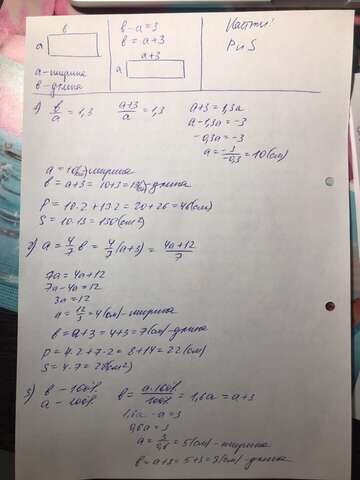 в
а
а - ширина
в - длина
в - а = 3
в = а + 3
а+3
а
Найти:
P и S
1) в/а = 1,3 (а+3)/а = 1,3 а+3 = 1,3а
а - 1,3а = -3
-0,3а = -3
а = -3/-0,3 = 10 (см)
а = 10 (см) - ширина
в = а+3 = 10+3 = 13 (см) - длина
P = 10·2 + 13·2 = 20 + 26 = 46 (см)
S = 10·13 = 130 (см²)
2) а = 4/7 в = 4/7 (а+3) = (4а+12)/7
7а = 4а+12
7а - 4а = 12
3а = 12
а = 12/3 = 4 (см) - ширина
в = а+3 = 4+3 = 7 (см) - длина
P = 4·2 + 7·2 = 8 + 14 = 22 (см)
S = 4·7 = 28 (см²)
3) в - 160%
а - 100%
в = а·160%/100% = 1,6а = а+3
1,6а - а = 3
0,6а = 3
а = 3/0,6 = 5 (см) - ширина
в = а+3 = 5+3 = 8 (см) - длина